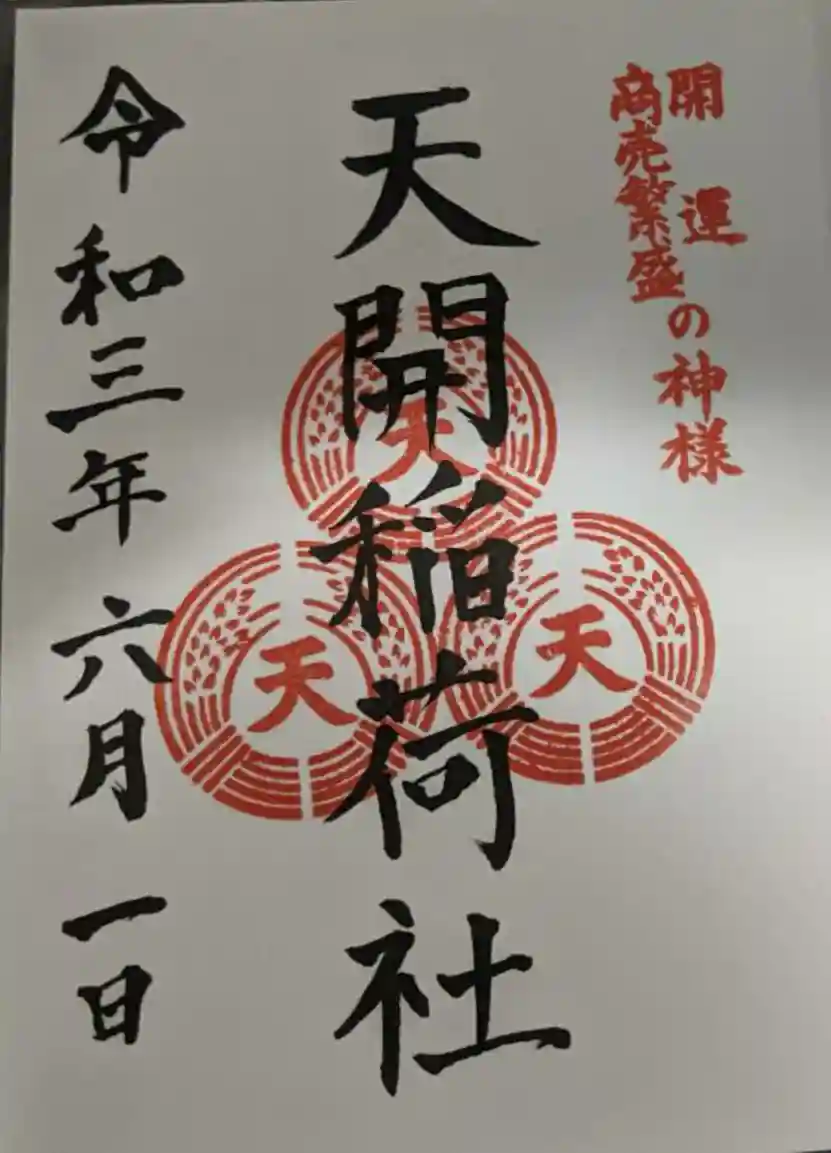 開運
商売繁盛
の神様
天開稲荷社
天
天
天
令和三年六月一日